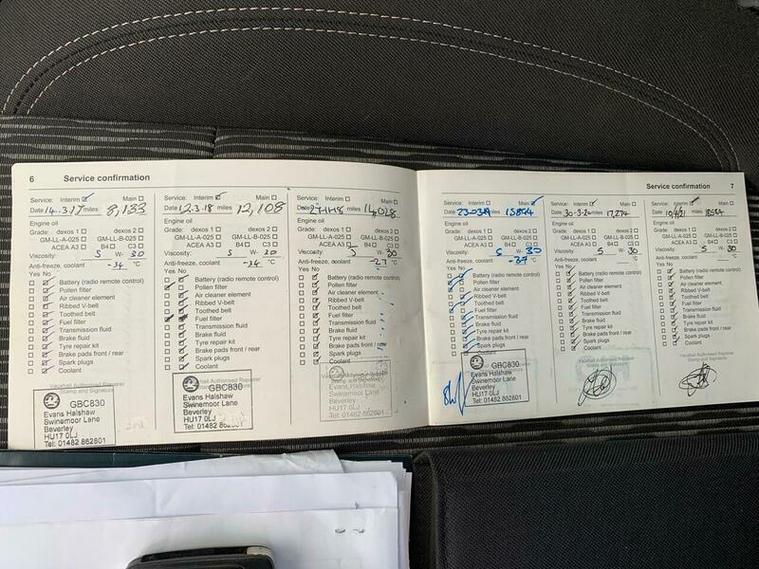 6
Service confirmation
Service: Interim Main
Date 14.3.17 miles 8,133
Engine oil
Grade: dexos 1 dexos 2
GM-LL-A-025 GM-LL-B-025
ACEA A3 B4 C3
Viscosity: 5 W- 30
Anti-freeze, coolant -34 °C
Yes No
Battery (radio remote control)
Pollen filter
Air cleaner element
Ribbed V-belt
Toothed belt
Fuel filter
Transmission fluid
Brake fluid
Tyre repair kit
Brake pads front / rear
Spark plugs
Coolant
Vauxhall Authorised Repairer
Stamp and Signature
GBC830
Evans Halshaw
Swinemoor Lane
Beverley
HU17 0LJ
Tel: 01482 862801
Service: Interim Main
Date 12.3.18 miles 12,108
Engine oil
Grade: dexos 1 dexos 2
GM-LL-A-025 GM-LL-B-025
ACEA A3 B4 C3
Viscosity: 5 W- 30
Anti-freeze, coolant -34 °C
Yes No
Battery (radio remote control)
Pollen filter
Air cleaner element
Ribbed V-belt
Toothed belt
Fuel filter
Transmission fluid
Brake fluid
Tyre repair kit
Brake pads front / rear
Spark plugs
Coolant
Vauxhall Authorised Repairer
GBC830
Evans Halshaw
Swinemoor Lane
Beverley
HU17 0LJ
Tel: 01482
Service: Interim Main
miles 14,028
Engine oil
Grade: dexos 1 dexos 2
GM-LL-A-025 GM-LL-B-025
ACEA A3 B4 C3
Viscosity: 5 W- 30
Anti-freeze, coolant -27 °C
Yes No
Battery (radio remote control)
Pollen filter
Air cleaner element
Ribbed V-belt
Toothed belt
Fuel filter
Transmission fluid
Brake fluid
Tyre repair kit
Brake pads front / rear
Spark plugs
Coolant
GBC830
Evans Halshaw
Swinemoor Lane
Beverley
HU17 0LJ
Tel: 01482 862801
Service confirmation
7
Service: Interim Main
Date miles
Engine oil
Grade: dexos 1 dexos 2
GM-LL-A-025 GM-LL-B-025
ACEA A3 B4 C3
Viscosity: 5 W- 30
Anti-freeze, coolant -27 °C
Yes No
Battery (radio remote control)
Pollen filter
Air cleaner element
Ribbed V-belt
Toothed belt
Fuel filter
Transmission fluid
Brake fluid
Tyre repair kit
Brake pads front / rear
Spark plugs
Coolant
GBC830
Evans Halshaw
Swinemoor Lane
Beverley
HU17 0LJ
Tel: 01482 862801
Service: Interim Main
Date 30-3-20 miles 17,274
Engine oil
Grade: dexos 1 dexos 2
GM-LL-A-025 GM-LL-B-025
ACEA A3 B4 C3
Viscosity: 5 W- 30
Anti-freeze, coolant °C
Yes No
Battery (radio remote control)
Pollen filter
Air cleaner element
Ribbed V-belt
Toothed belt
Fuel filter
Transmission fluid
Brake fluid
Tyre repair kit
Brake pads front / rear
Spark plugs
Coolant
Vauxhall Authorised Repairer
Stamp and Signature
Service: Interim Main
Date miles
Engine oil
Grade: dexos 1 dexos 2
GM-LL-A-025 GM-LL-B-025
ACEA A3 B4 C3
Viscosity: 5 W- 30
Anti-freeze, coolant °C
Yes No
Battery (radio remote control)
Pollen filter
Air cleaner element
Ribbed V-belt
Toothed belt
Fuel filter
Transmission fluid
Brake fluid
Tyre repair kit
Brake pads front / rear
Spark plugs
Coolant
Vauxhall Authorised Repairer
Stamp and Signature